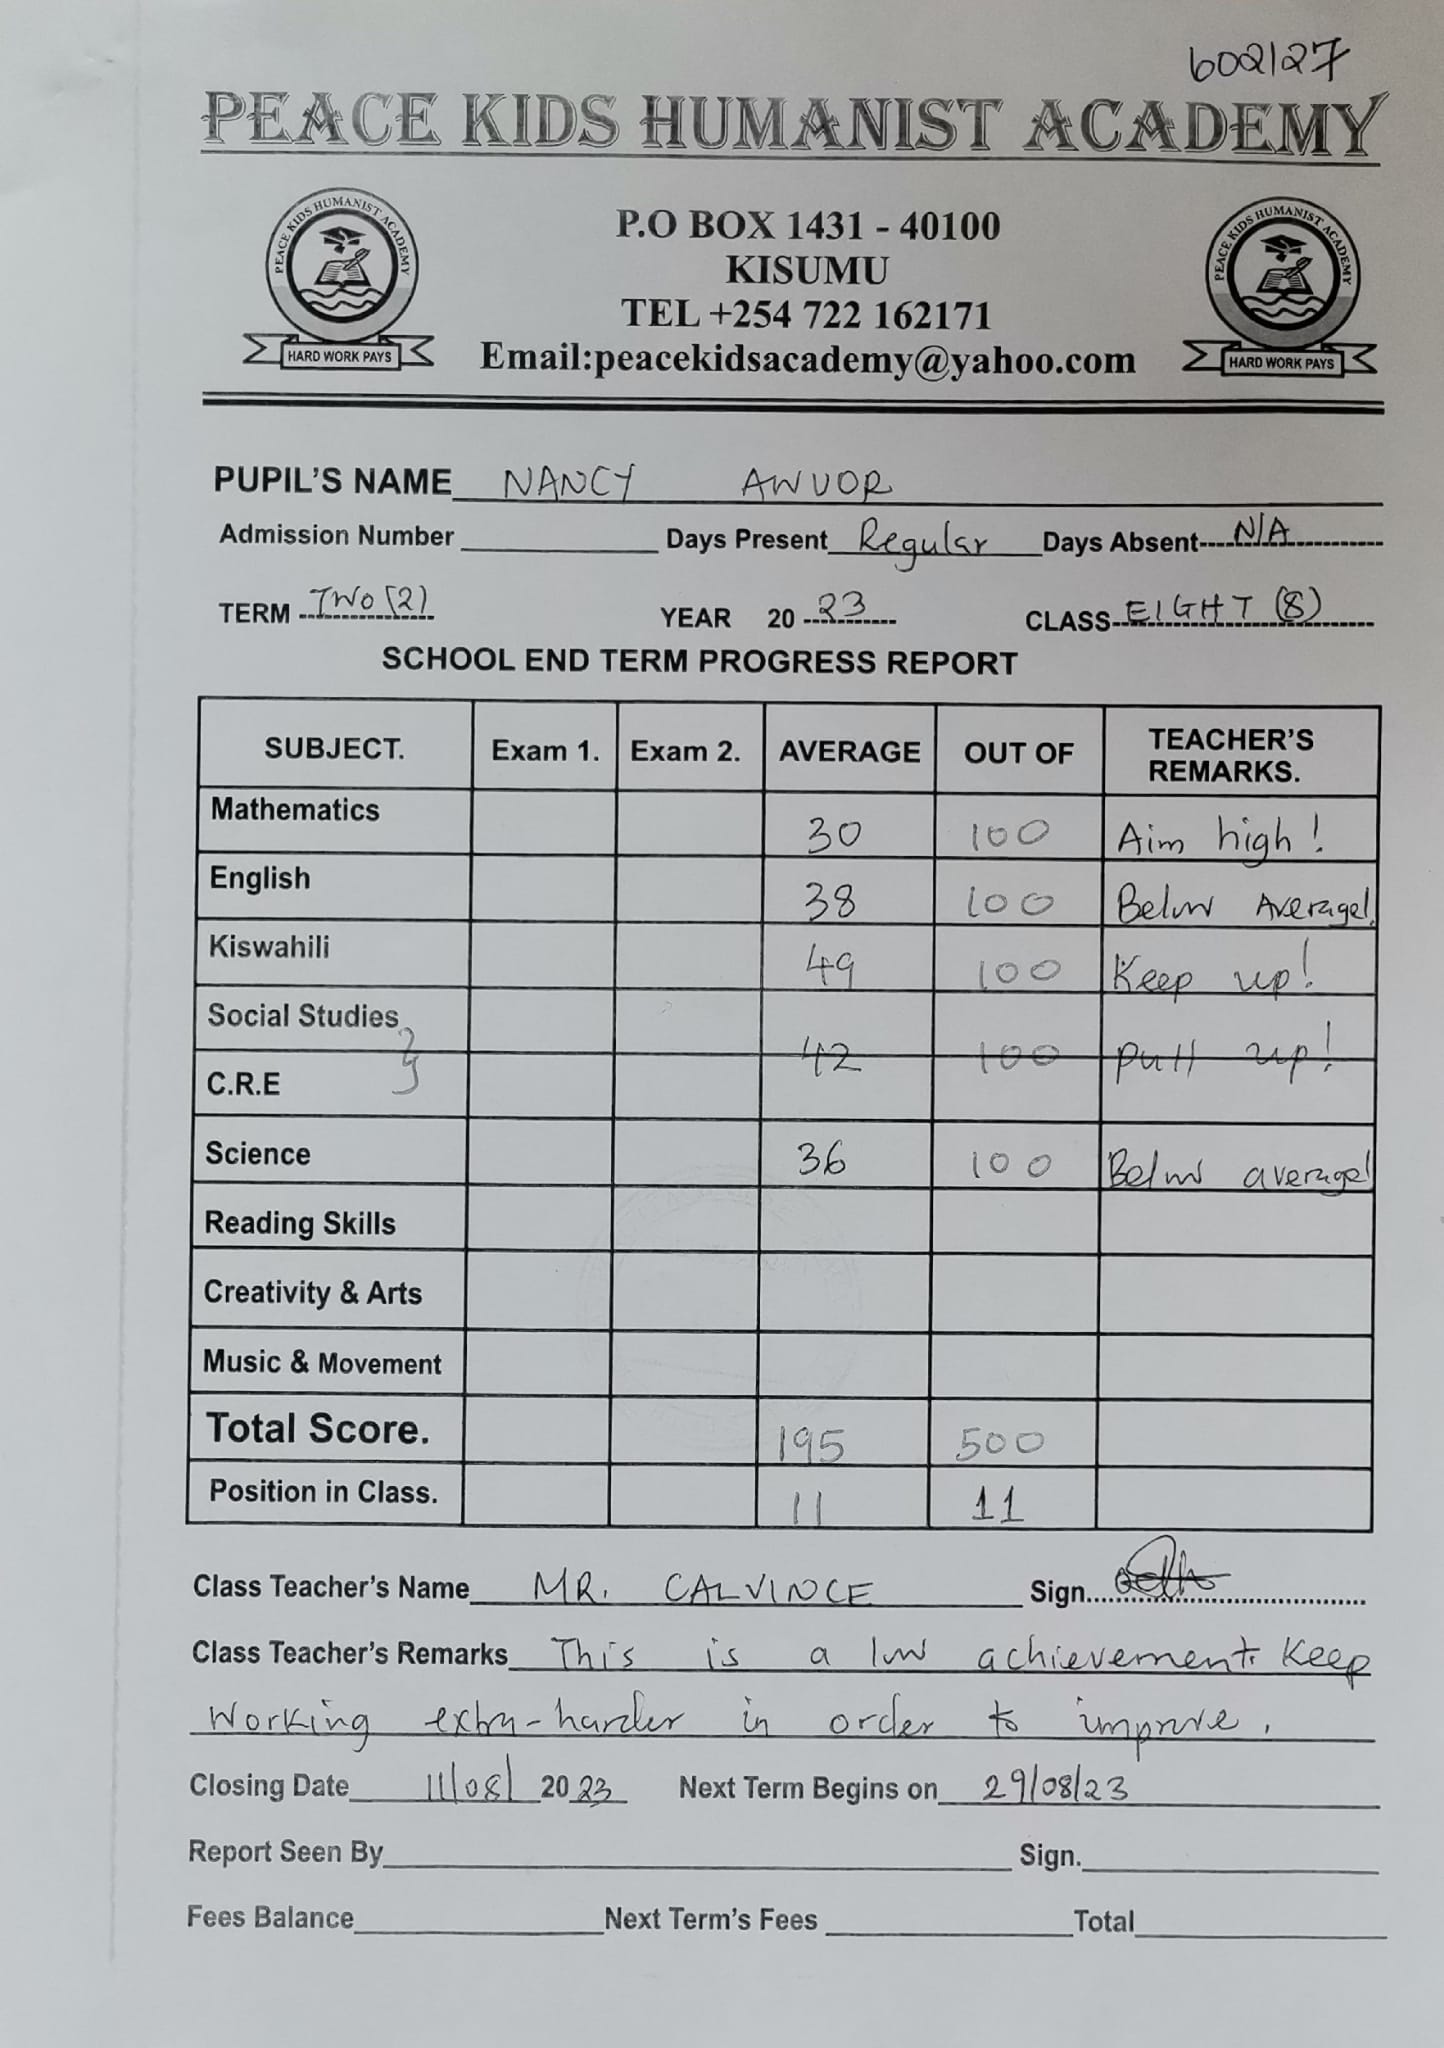 602127
PEACE KIDS HUMANIST ACADEMY
PEACE KIDS HUMANIST ACADEMY
HARD WORK PAYS
P.O BOX 1431 - 40100
KISUMU
TEL +254 722 162171
Email:peacekidsacademy@yahoo.com
PEACE KIDS HUMANIST ACADEMY
HARD WORK PAYS
PUPIL'S NAME NANCY AWUOR
Admission Number Days Present Regular Days Absent N/A
TERM TWO (2) YEAR 20 23 CLASS EIGHT (8)
SCHOOL END TERM PROGRESS REPORT
SUBJECT. Exam 1. Exam 2. AVERAGE OUT OF TEACHER'S REMARKS.
Mathematics 30 100 Aim high!
English 38 100 Below Average!
Kiswahili 49 100 Keep up!
Social Studies
C.R.E 42 100 Pull up!
Science 36 100 Below average!
Reading Skills
Creativity & Arts
Music & Movement
Total Score. 195 500
Position in Class. 11 11
Class Teacher's Name MR. CALVINCE Sign
Class Teacher's Remarks This is a low achievement. Keep
Working extra-harder in order to improve.
Closing Date 11/08/ 20 23 Next Term Begins on 29/08/23
Report Seen By Sign.
Fees Balance Next Term's Fees Total